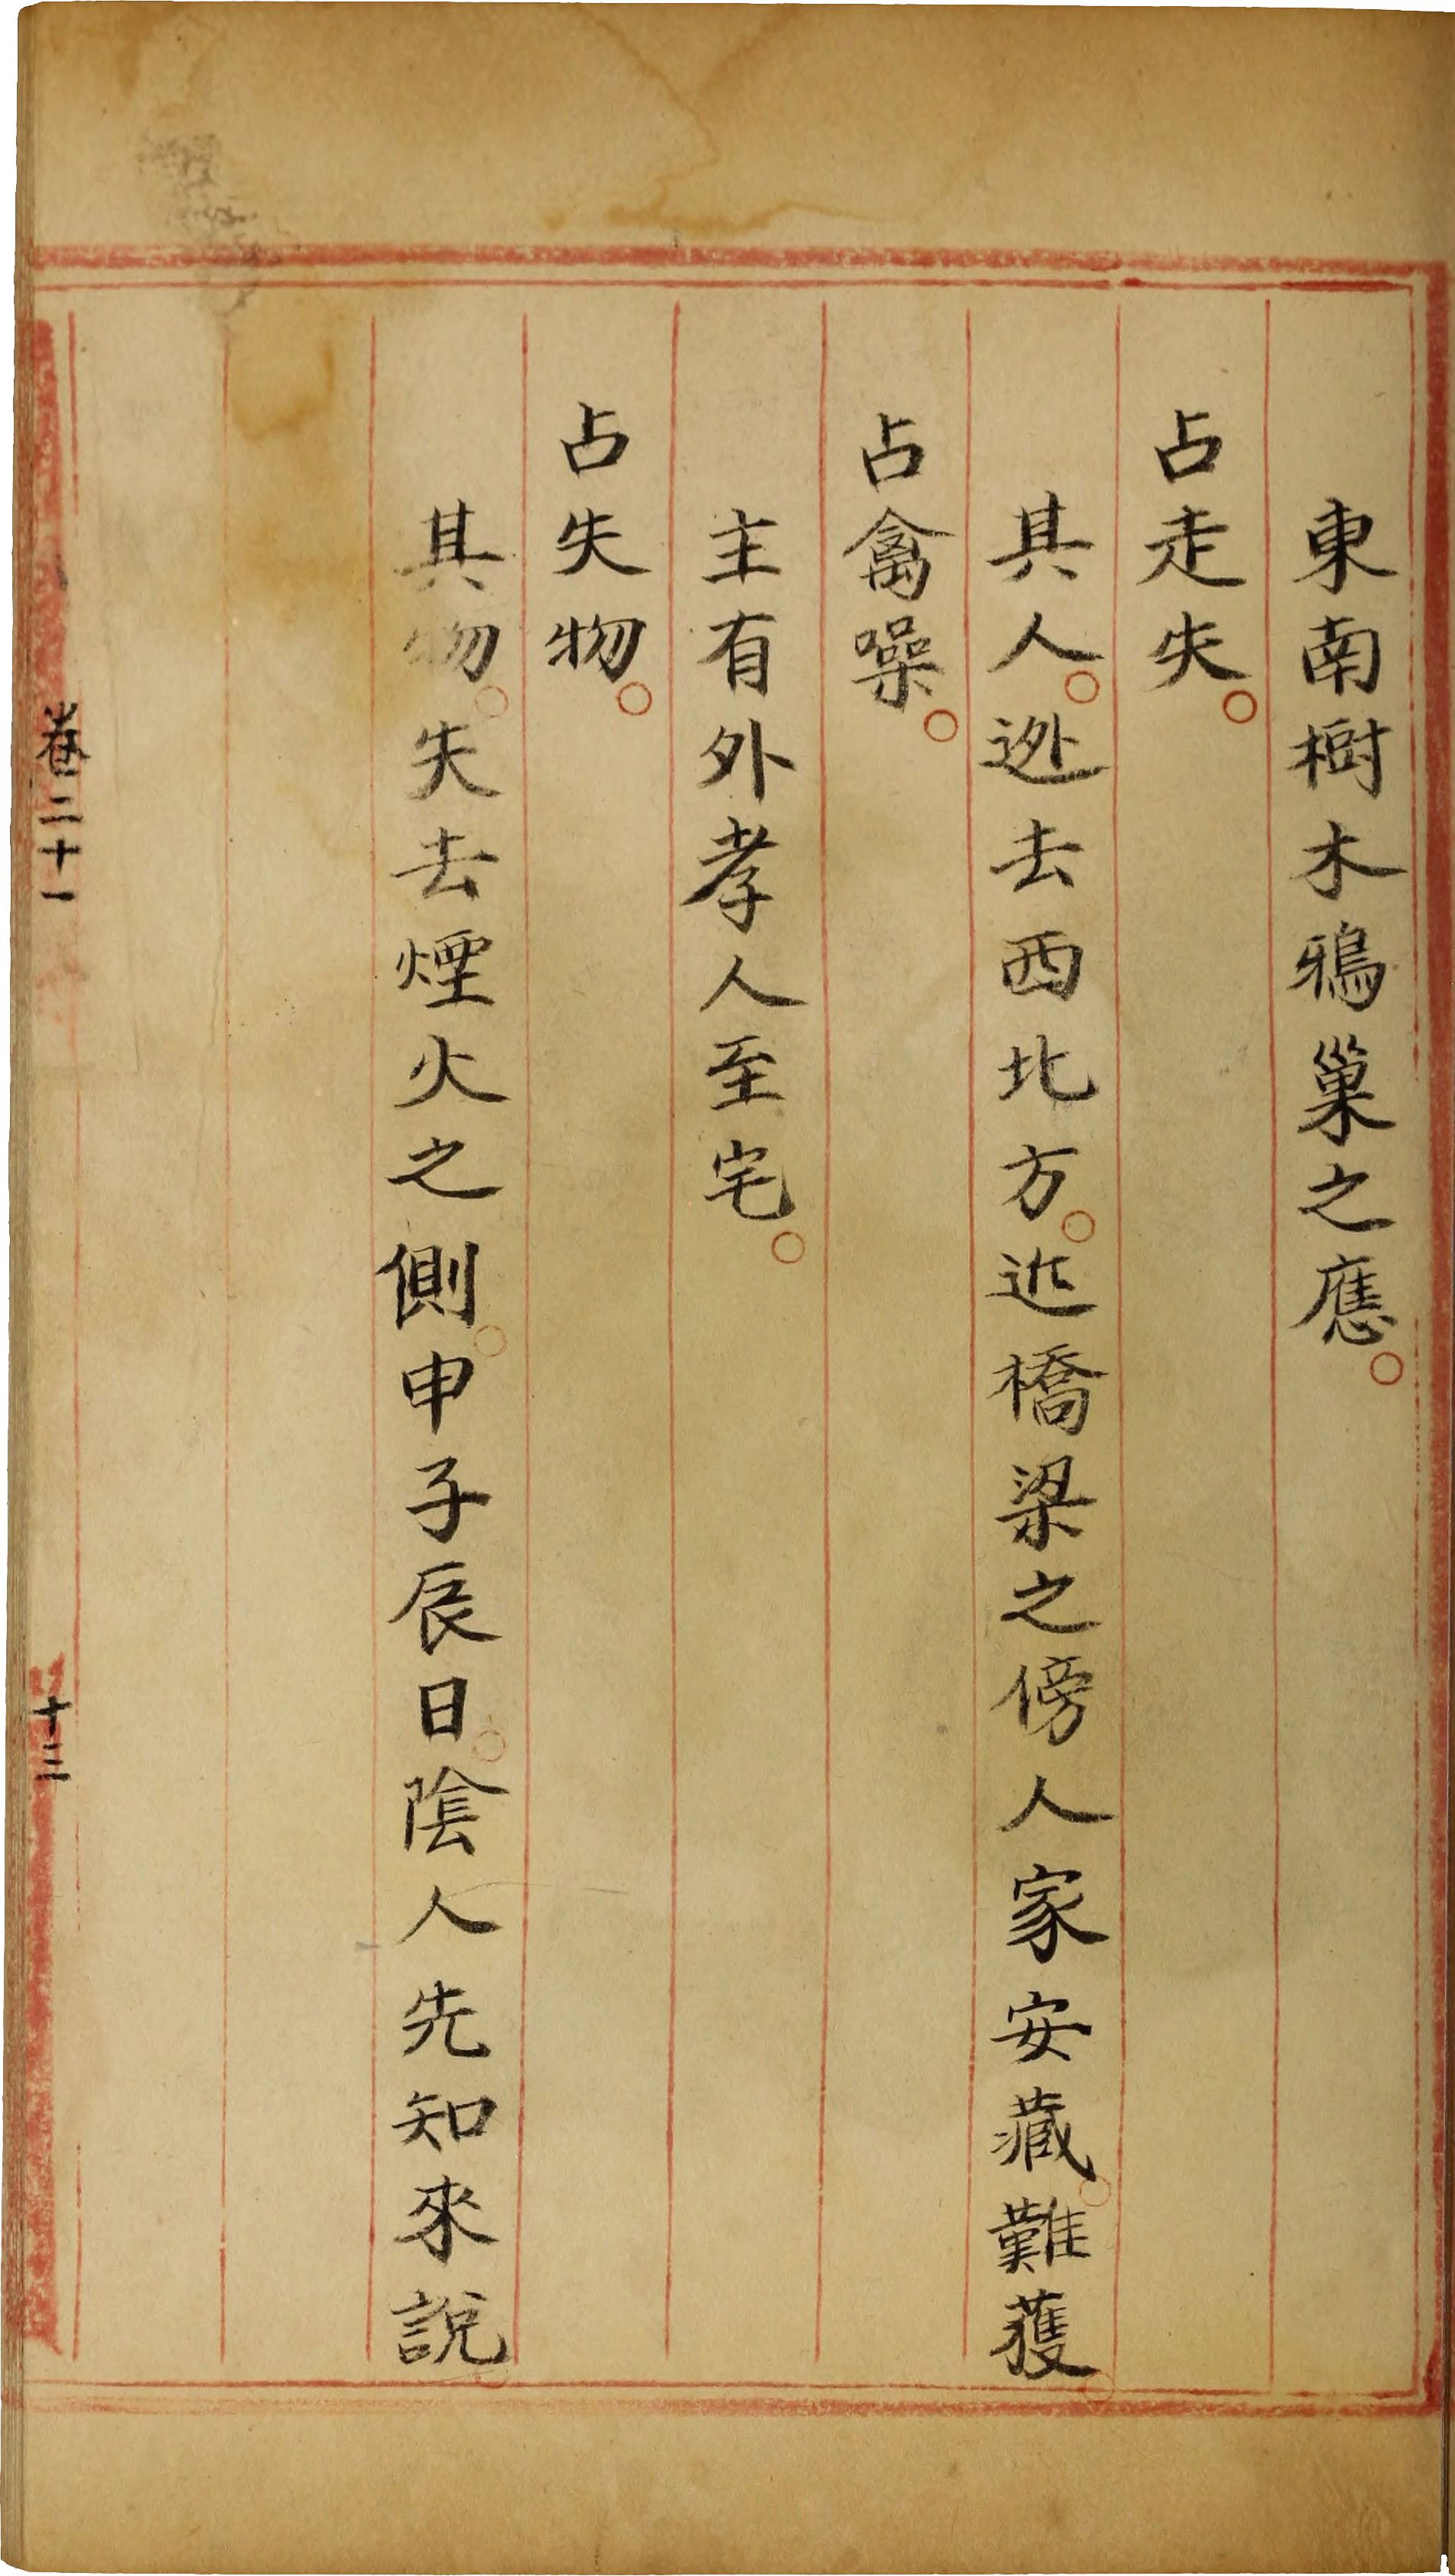 東南樹木鴉巢之應。
占走失。
其人。逃去西北方。近橋梁之傍人家安藏。難獲。
占禽噪。
主有外孝人至宅。
占失物。
其物。失去煙火之側。申子辰日。陰人先知來說。
卷二十一
十三